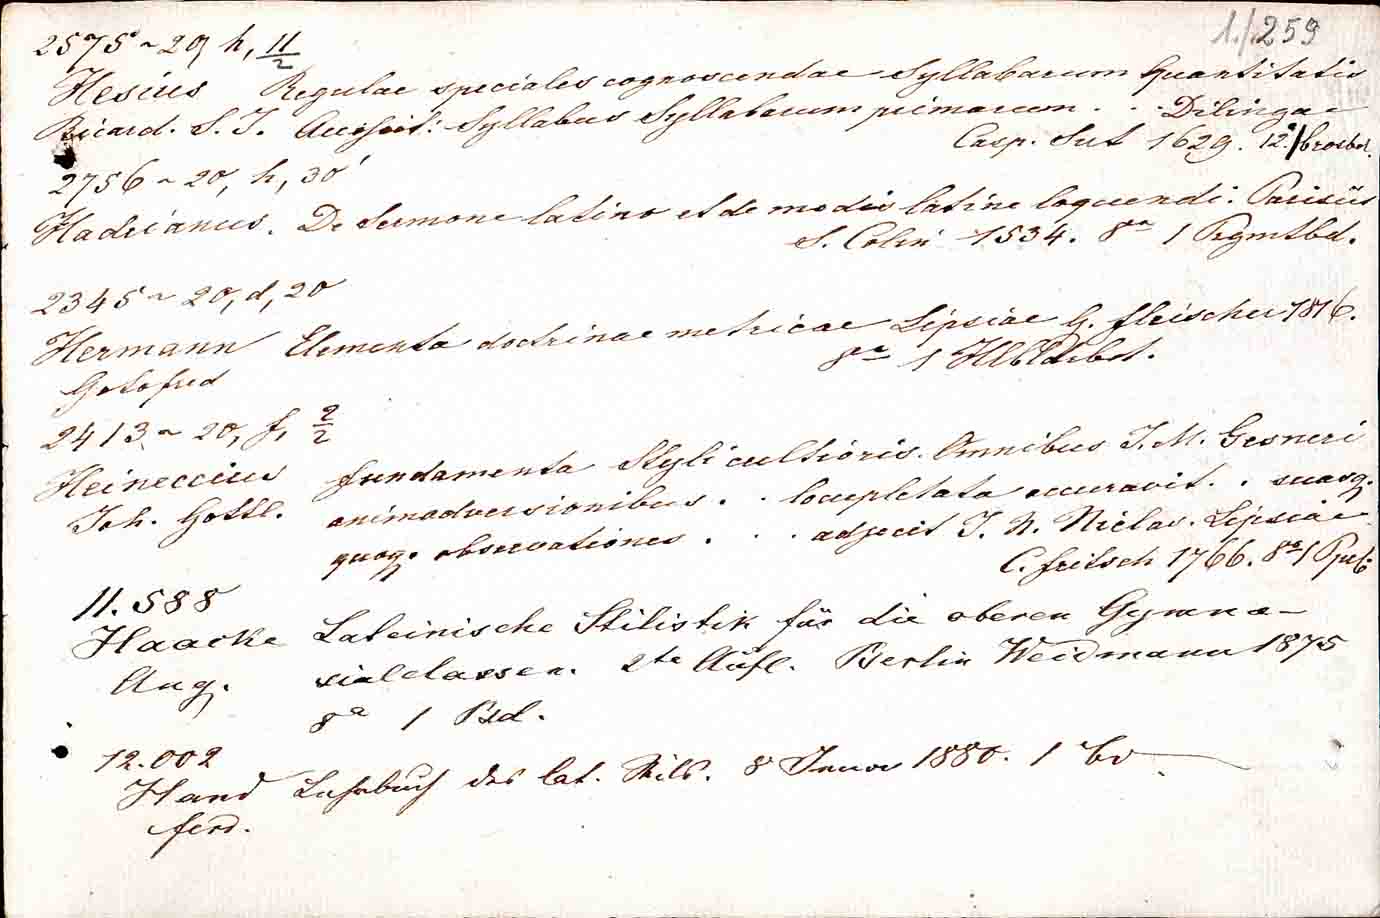 1./259
2575 ~ 20, h, 11/2
Hesius Regulae speciales cognoscendae Syllabarum Quantitatis
Ricard. S. J. Accessit: Syllabus Syllabarum primarum . . . Dilingae
Casp. Sut 1629. 12° / brosbd.
2756 ~ 20, h, 30
Hadrianus. De Sermone latino et de modis latine loquendi. Parisiis
S. Colin 1534. 8° 1 Prgmtbd.
2345 ~ 20, d, 20
Hermann Elementa doctrinae metricae Lipsiae G. Fleischer 1816.
Gotofred 8° 1 Hlbldrbd.
2413 ~ 20, f, 2/2
Heineccius Fundamenta Styli cultioris. Omnibus J. M. Gesneri
Joh. Gottl. animadversionibus . . locupletata accuravit . . suasq.
quoq. observationes . . . adjecit J. N. Niclas. Lipsiae
C. Fritsch 1766. 8° 1
11.588
Haacke Lateinische Stilistik für die oberen Gymna-
Aug. sialclassen. 2te Aufl. Berlin Weidmann 1875
8° 1 Bd.
12.002
Hand Lehrbuch des lat. Stils. 8° Jena 1880. 1 bd
Ferd.